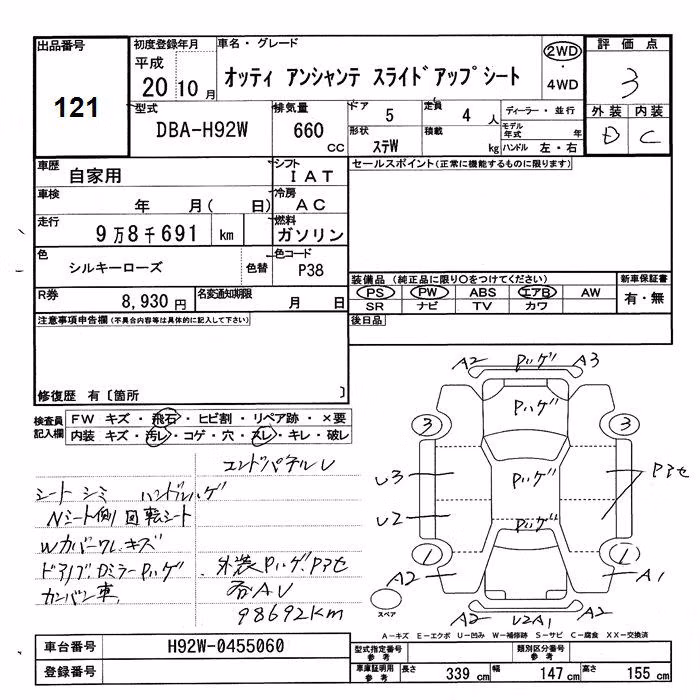 出品番号 初度登録年月 車名・グレード 評価点
121
平成 20年 10月
オッティ アンシャンテ スライドアップシート
2WD ・ 4WD
3
型式 排気量 ドア 定員 ディーラー・並行 外装 内装
DBA-H92W 660 cc 5 4人 モデル年式 年 D C
形状 積載
ステW kg ハンドル 左・右
車歴 シフト セールスポイント(正常に機能するものに限ります)
自家用 IAT
車検 冷房
年 月( 日) AC
走行 燃料
9万8千691 km ガソリン
色 色コード
シルキーローズ 色替 P38
装備品(純正品に限り○をつけてください) 新車保証書
R券 名変通知期限
8,930円 月 日
PS PW ABS エアB AW 有・無
SR ナビ TV カワ
注意事項申告欄(不具合内容等は具体的に記入して下さい) 後日品
修復歴 有〔箇所 〕
検査員記入欄
FW キズ・飛石・ヒビ割・リペア跡・×要
内装 キズ・汚レ・コゲ・穴・スレ・キレ・破レ
エンドパネルU
シートシミ ハンドルハゲ
Nシート側 回転シート
Wカバーワレ.キズ
ドアノブ.Dミラー Pハゲ 外装Pハゲ.Pアセ
カンバン車. 各AU
98692KM
A2 Pハゲ A3
Pハゲ
3 3
U3 Pハゲ Pアセ
U2 Pハゲ
1 1
A2 A1
スペア
A2 U2A1 A2
A-キズ E-エクボ U-凹み W-補修跡 S-サビ C-腐食 XX-交換済
車台番号 H92W-0455060 型式指定番号 参考 類別区分番号 参考
登録番号 車庫証明用 参考 長さ 339cm 幅 147cm 高さ 155cm